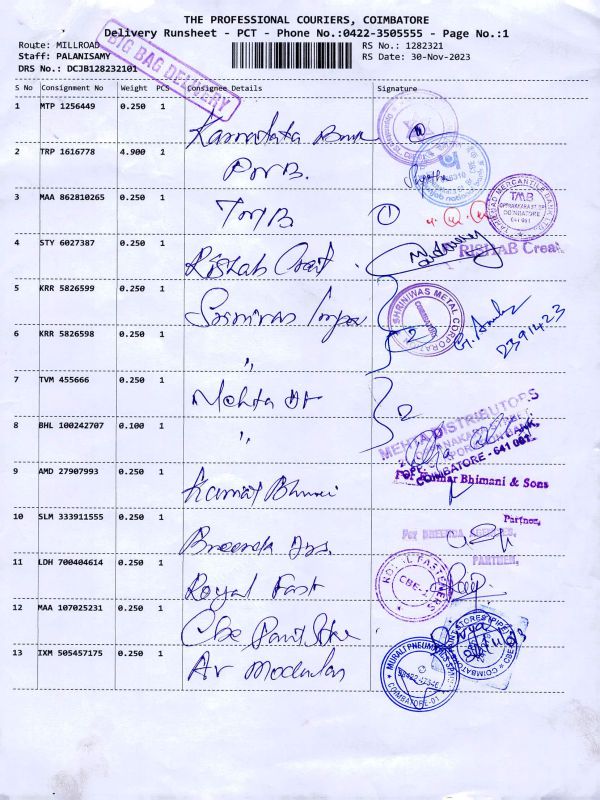 THE PROFESSIONAL COURIERS, COIMBATORE
Delivery Runsheet - PCT - Phone No.:0422-3505555 - Page No.:1
Route: MILLROAD
Staff: PALANISAMY
DRS No.: DCJB128232101
RS No.: 1282321
RS Date: 30-Nov-2023
BIG BAG DELIVERY
S No Consignment No Weight PCS Consignee Details Signature
1 MTP 1256449 0.250 1 Karnataka Bank
2 TRP 1616778 4.900 1 PNB.
3 MAA 862810265 0.250 1 TMB
TMB
COIMBATORE
641 001
4 STY 6027387 0.250 1 Rishab Creat
RISHAB Creat
5 KRR 5826599 0.250 1 Srinivas Impex
SHRINIWAS METAL CORPORATION
COIMBATORE
2
6 KRR 5826598 0.250 1 "
7 TVM 455666 0.250 1 Mehta Dt
2
8 BHL 100242707 0.100 1 "
MEHTA DISTRIBUTORS
COIMBATORE - 641 001
9 AMD 27907993 0.250 1 Kumar Bhimani
For Kumar Bhimani & Sons
Partner.
10 SLM 333911555 0.250 1
PARTNER.
11 LDH 700404614 0.250 1 Royal Fast
ROYAL FASTENERS
CBE-1
12 MAA 107025231 0.250 1 Cbe Paint Store
13 IXM 505457175 0.250 1
MURALI PNEUMATICS
COIMBATORE-01